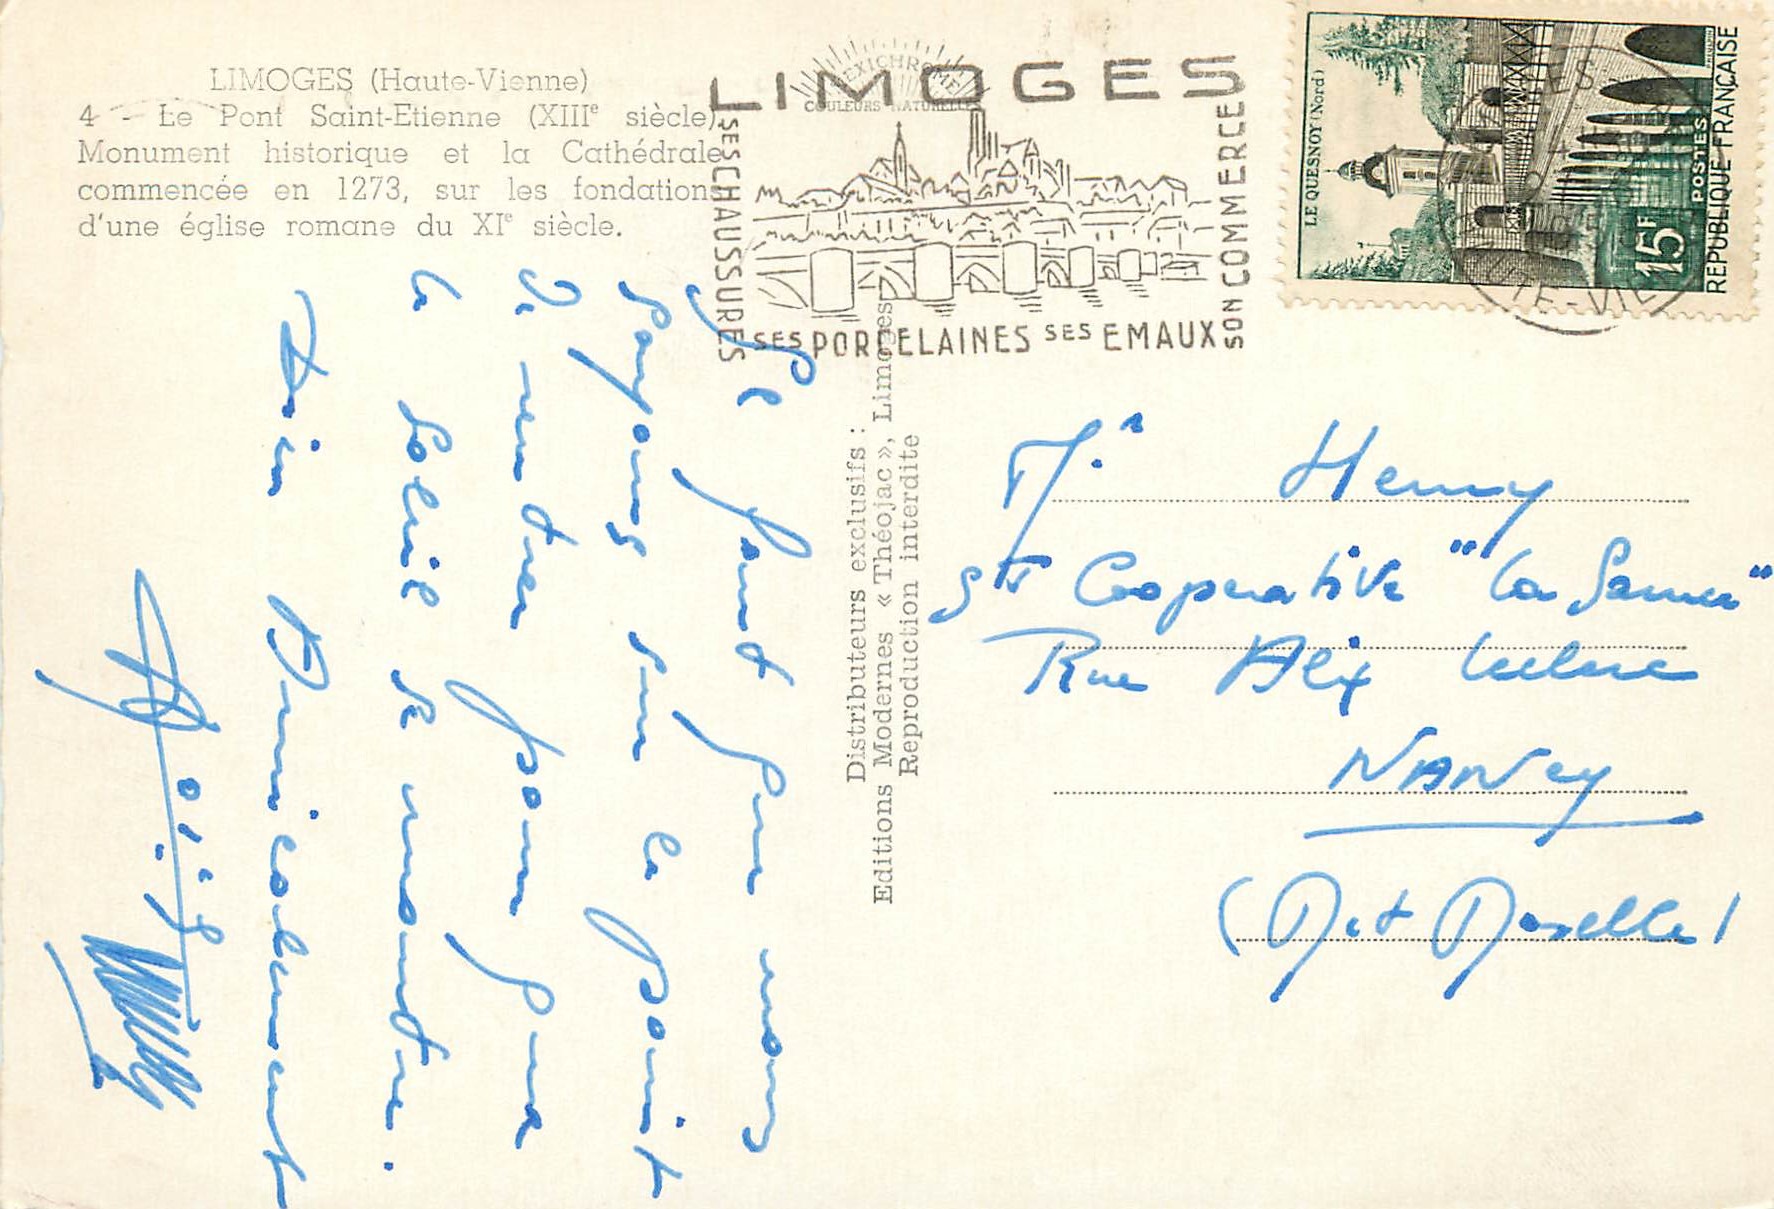 LIMOGES (Haute-Vienne)
4 - Le Pont Saint-Etienne (XIIIe siècle).
Monument historique et la Cathédrale
commencée en 1273, sur les fondations
d'une église romane du XIe siècle.
LEXICHROME
COULEURS NATURELLES
LIMOGES
SES CHAUSSURES
SES PORCELAINES SES EMAUX
SON COMMERCE
LE QUESNOY (Nord)
POSTES
15F
REPUBLIQUE FRANÇAISE
TE-VIE
Distributeurs exclusifs :
Editions Modernes « Théojac », Limoges
Reproduction interdite
Il faut que nous
soyons sur le point
de rentrer pour que
le soleil se montre.
Bien Amicalement
Henry
Cooperative "La
Rue Alix Leclerc
NANCY
(Met Moselle)